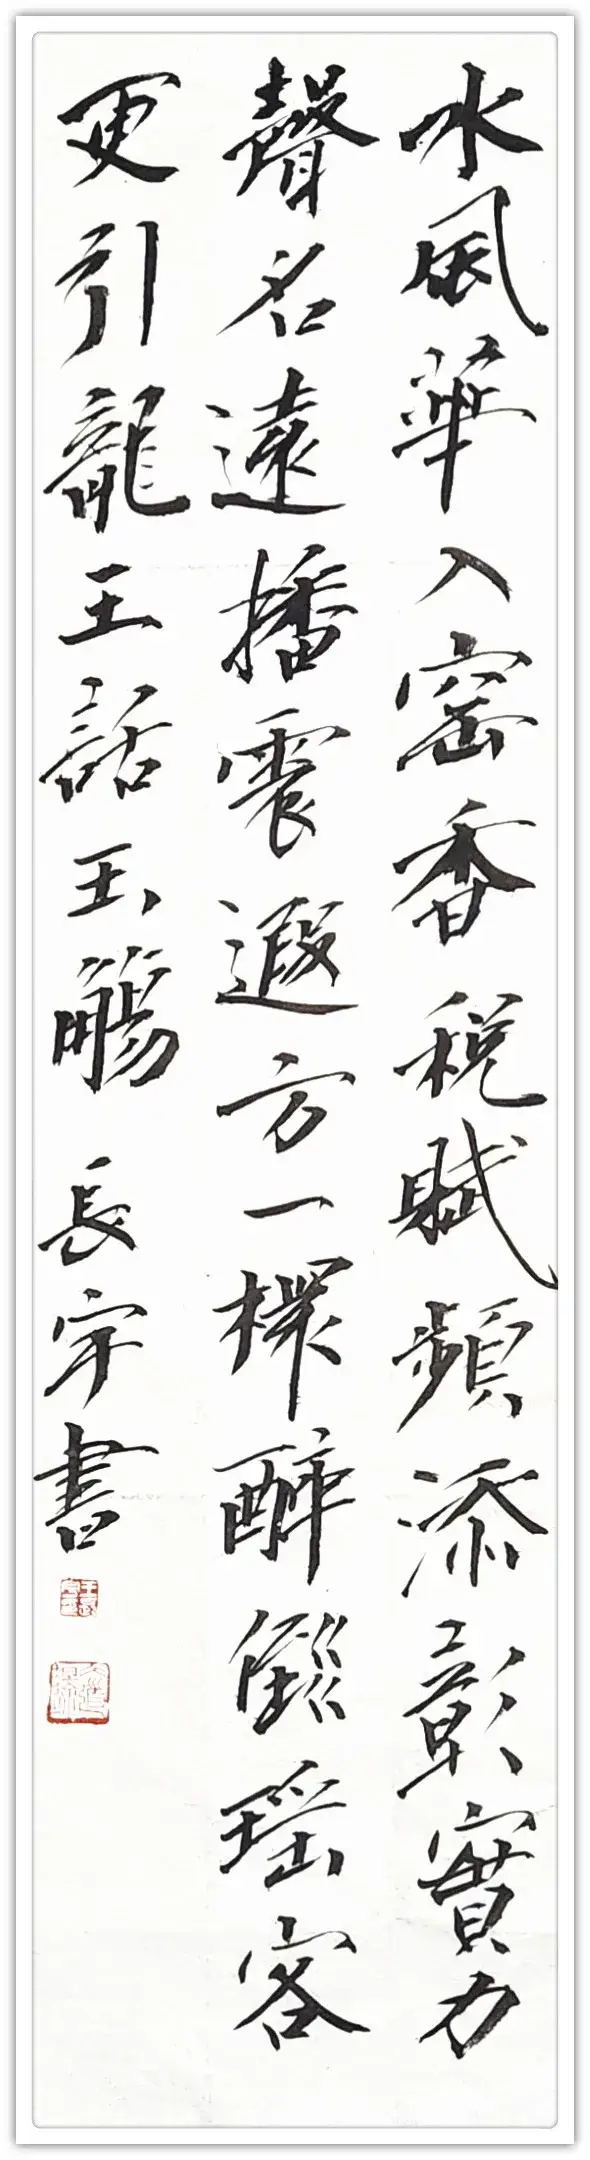 水風華入窖香稅賦頻添彰實力
聲名遠播震遐方一醉瑶客
更引龍王話玉觴 長宇書